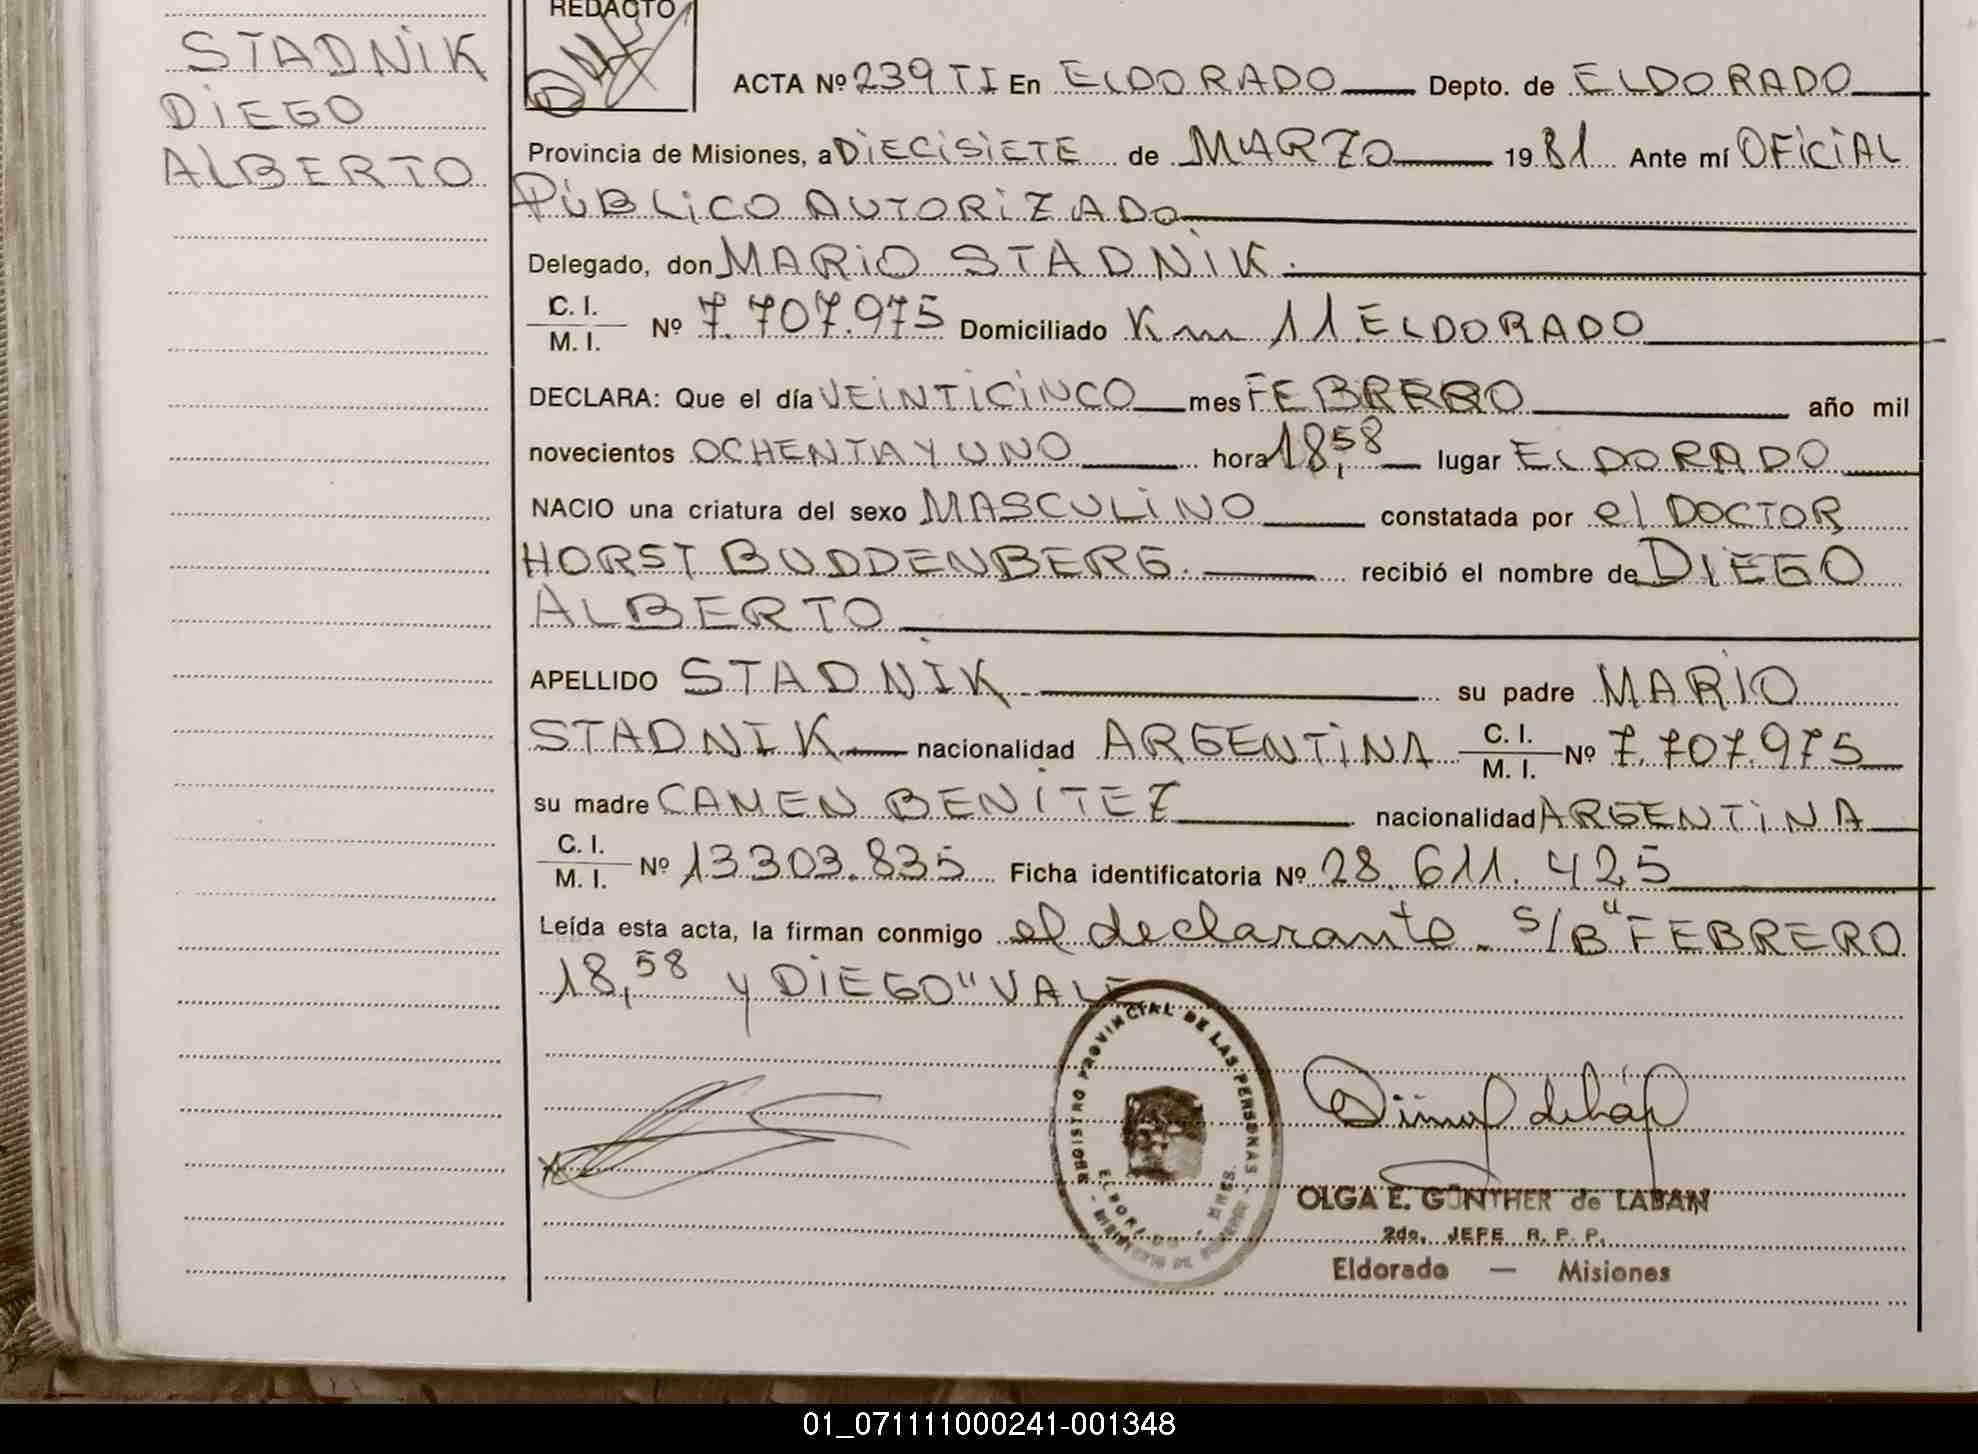 STADNIK
DIEGO
ALBERTO
REDACTO
ACTA Nº 239 TI En ELDORADO Depto. de ELDORADO
Provincia de Misiones, a DIECISIETE de MARZO 1981 Ante mí OFICIAL
PÚBLICO AUTORIZADO
Delegado, don MARIO STADNIK.
C. I.
M. I. Nº 7.707.975 Domiciliado Km 11 ELDORADO
DECLARA: Que el día VEINTICINCO mes FEBRERO año mil
novecientos OCHENTA Y UNO hora 18,58 lugar ELDORADO
NACIO una criatura del sexo MASCULINO constatada por el DOCTOR
HORST BUDDENBERG. recibió el nombre de DIEGO
ALBERTO
APELLIDO STADNIK su padre MARIO
STADNIK nacionalidad ARGENTINA C. I. M. I. Nº 7.707.975
su madre CAMEN BENITEZ nacionalidad ARGENTINA
C. I.
M. I. Nº 13303.835 Ficha identificatoria Nº 28.611.425
Leída esta acta, la firman conmigo el declarante. S/B "FEBRERO
18,58 y DIEGO" VALE
REGISTRO PROVINCIAL DE LAS PERSONAS
OLGA E. GÜNTHER de LABAN
2do. JEFE R. P. P.
Eldorado — Misiones
01_071111000241-001348